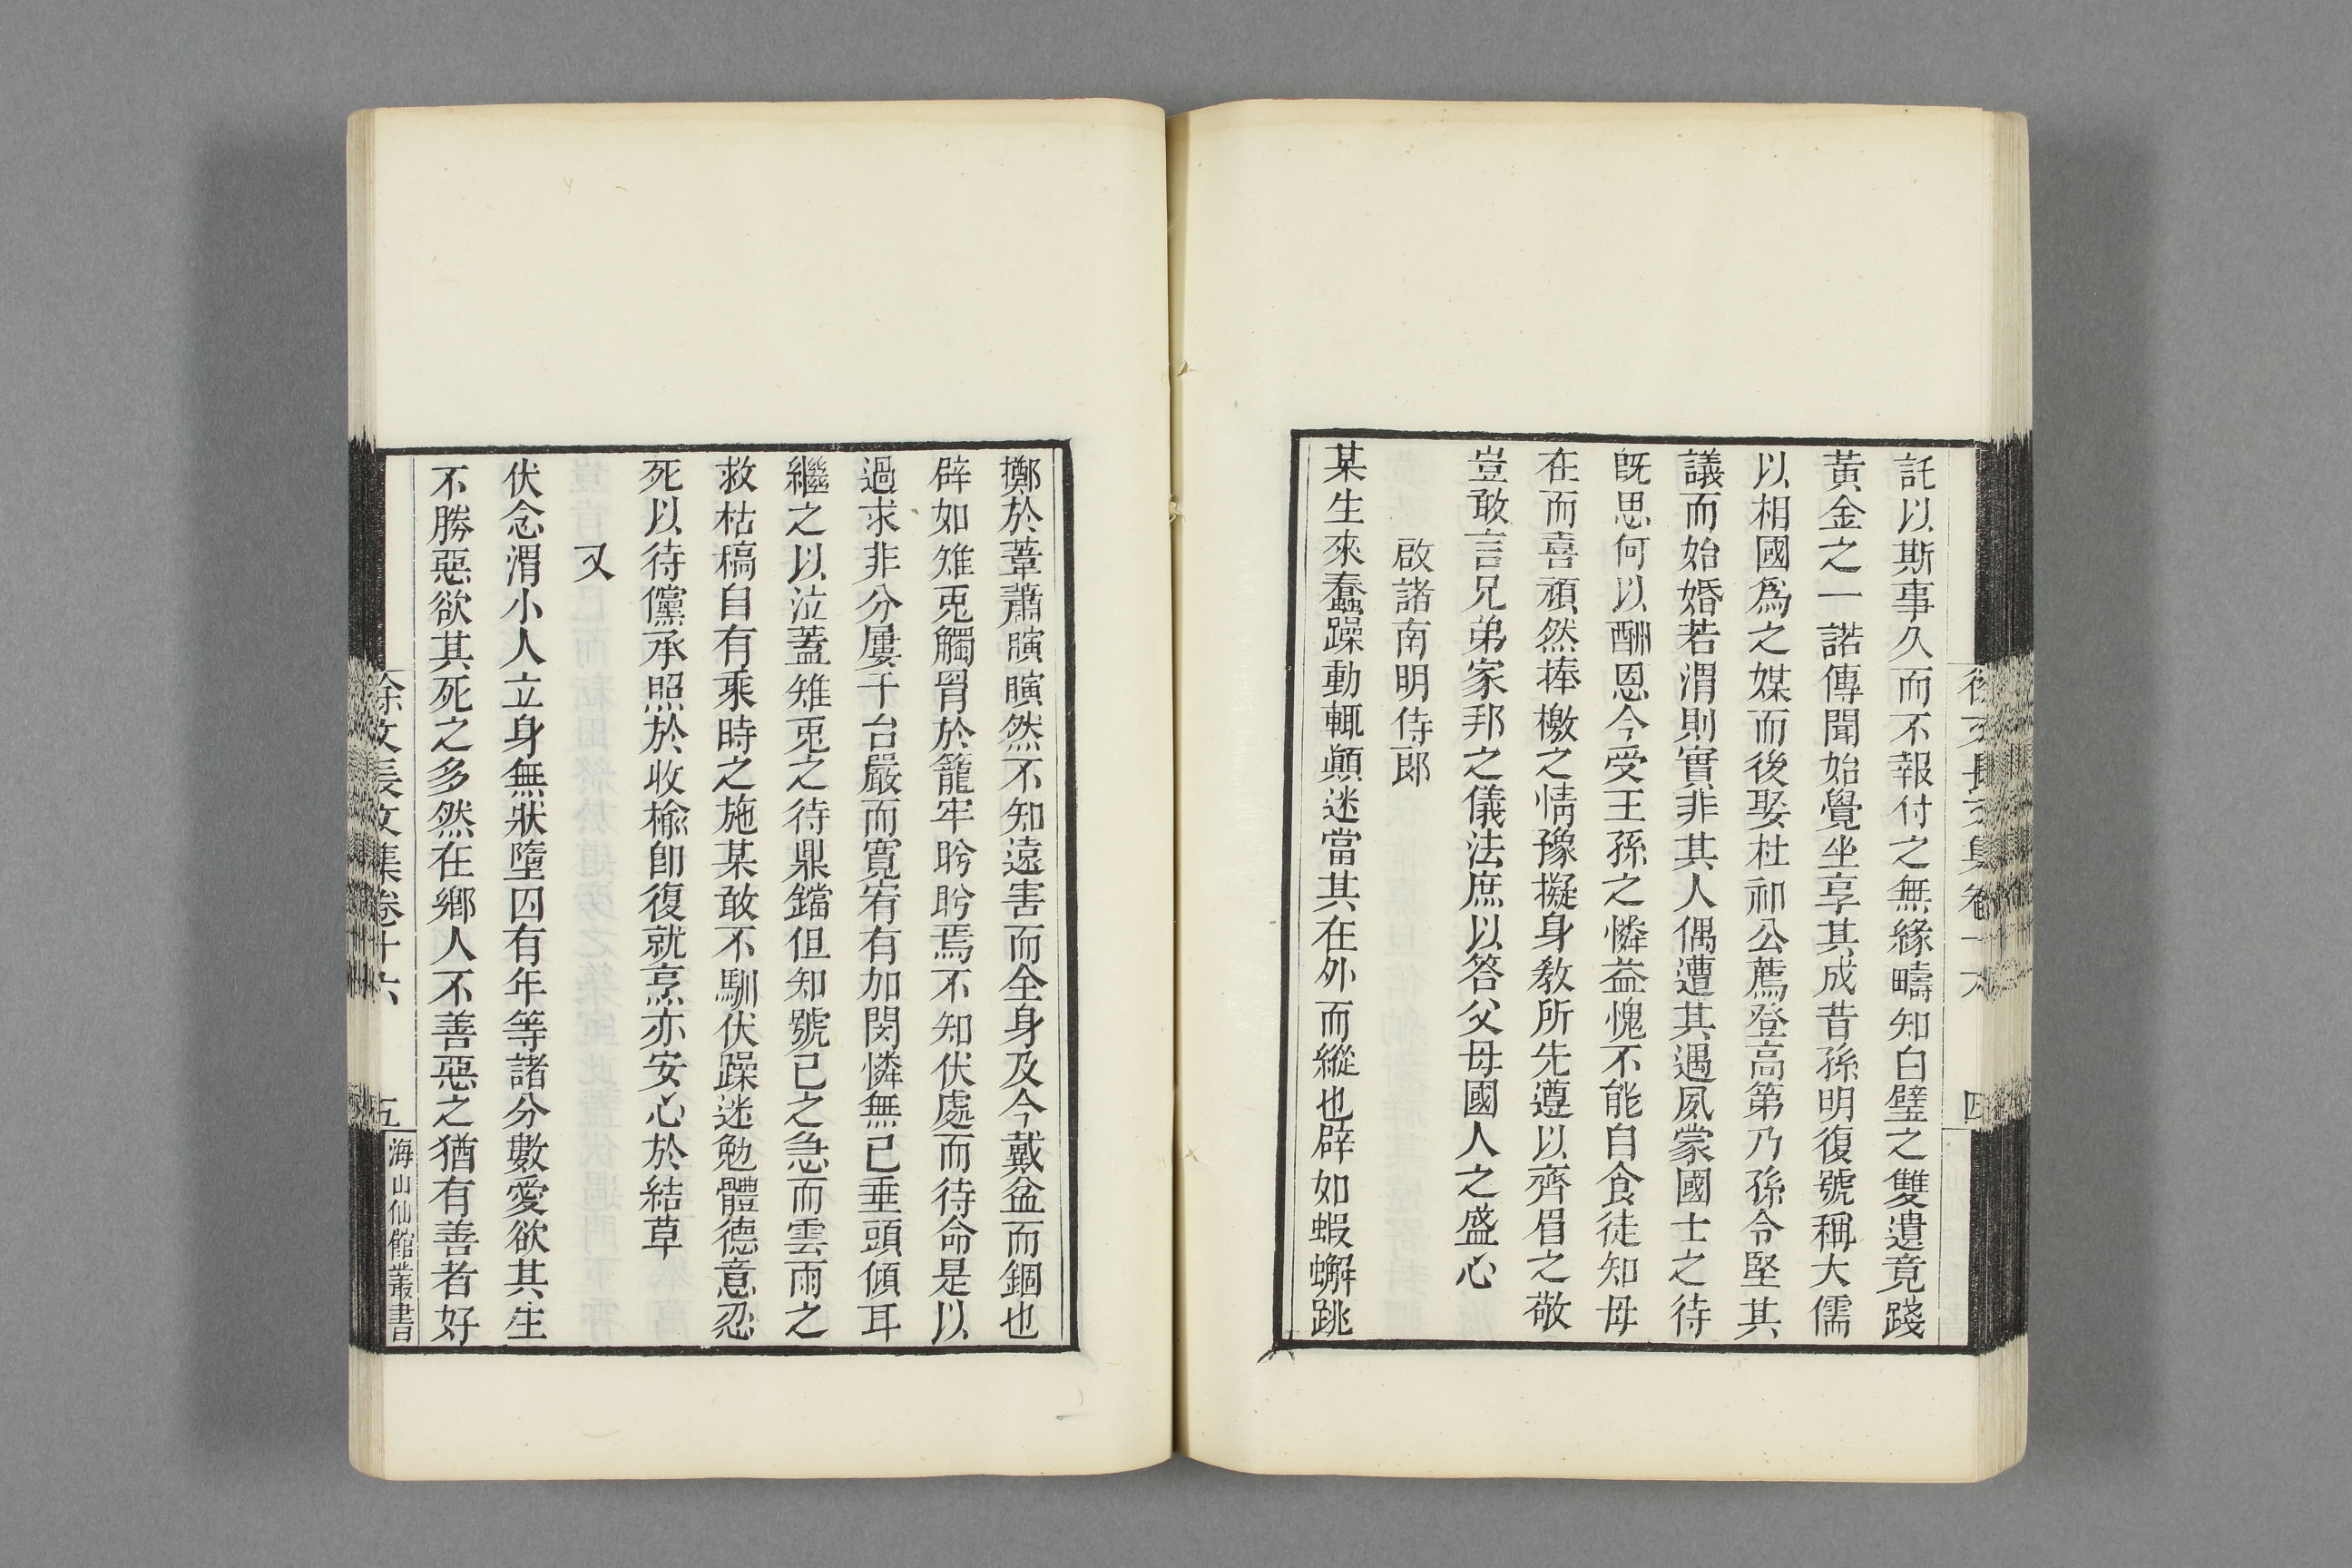 託以斯事久而不報付之無緣疇知白璧之雙遺竟踐
黃金之一諾傳聞始覺坐享其成昔孫明復號稱大儒
以相國爲之媒而後娶杜祁公薦登高第乃孫令堅其
議而始婚若渭則實非其人偶遭其遇夙蒙國士之待
旣思何以酬恩今受王孫之憐益愧不能自食徒知母
在而喜頑然捧檄之情豫擬身教所先遵以齊眉之敬
豈敢言兄弟家邦之儀法庶以答父母國人之盛心
啟諸南明侍郎
某生來蠢躁動輒顚迷當其在外而縱也辟如蝦蠏跳
擲於葦蕭瞚瞚然不知遠害而全身及今戴盆而錮也
辟如雉兎觸罥於籠牢盻盻焉不知伏處而待命是以
過求非分屢干台嚴而寬宥有加閔憐無已垂頭傾耳
繼之以泣蓋雉兎之待鼎鐺但知號已之急而雲雨之
救枯稿自有乘時之施某敢不馴伏躁迷勉體德意忍
死以待儻承照於收楡卽復就烹亦安心於結草
又
伏念渭小人立身無狀墮囚有年等諸分數愛欲其生
不勝惡欲其死之多然在鄉人不善惡之猶有善者好
徐文長文集卷十六
五
海山仙館叢書